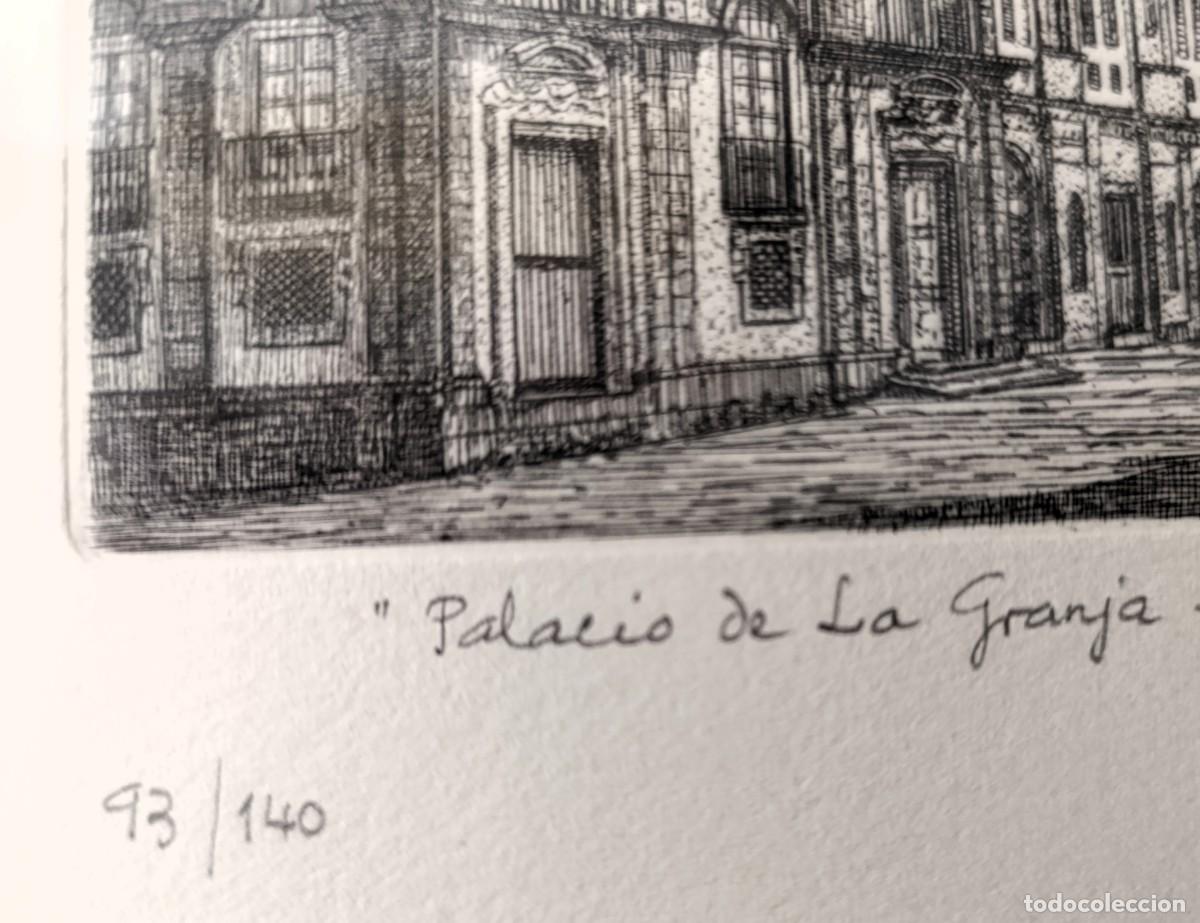 " Palacio de La Granja -
93/140
todocoleccion